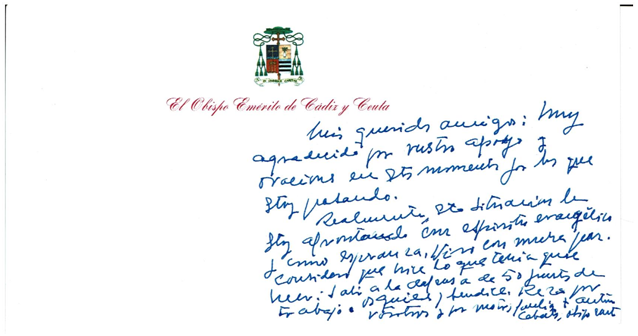 El Obispo Emérito de Cádiz y Ceuta
Mis queridos amigos: Muy
agradecido por vuestro apoyo y
oraciones en estos momentos por los que
estoy pasando.
Realmente, esta situación la
estoy afrontando con espíritu evangélico
y como esperanza. Vivo con mucha paz.
Considero que hice lo que tenía que
hacer: salí a la defensa de 50 puestos de
trabajo. Os quiere, bendice, reza por
vosotros y por